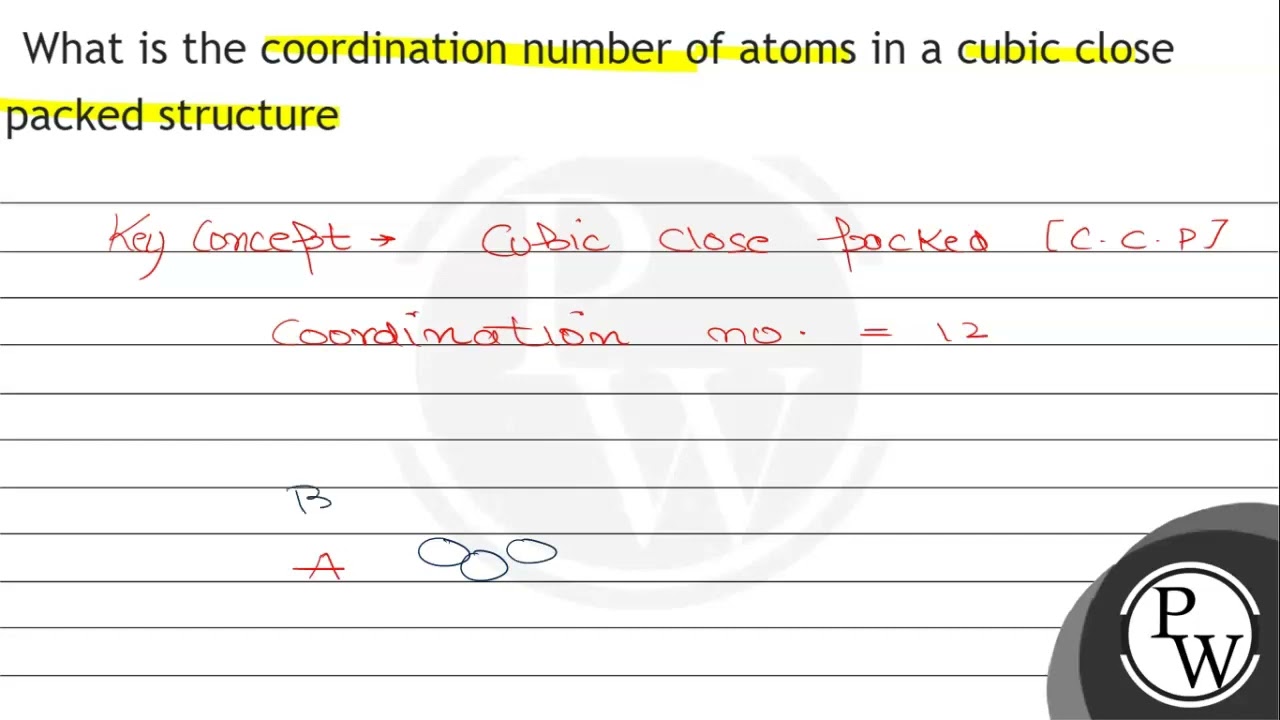 What is the coordination number of atoms in a cubic close
packed structure
Key Concept → Cubic close packed [C.C.P]
Coordination no. = 12
B
A
P
W
P
W